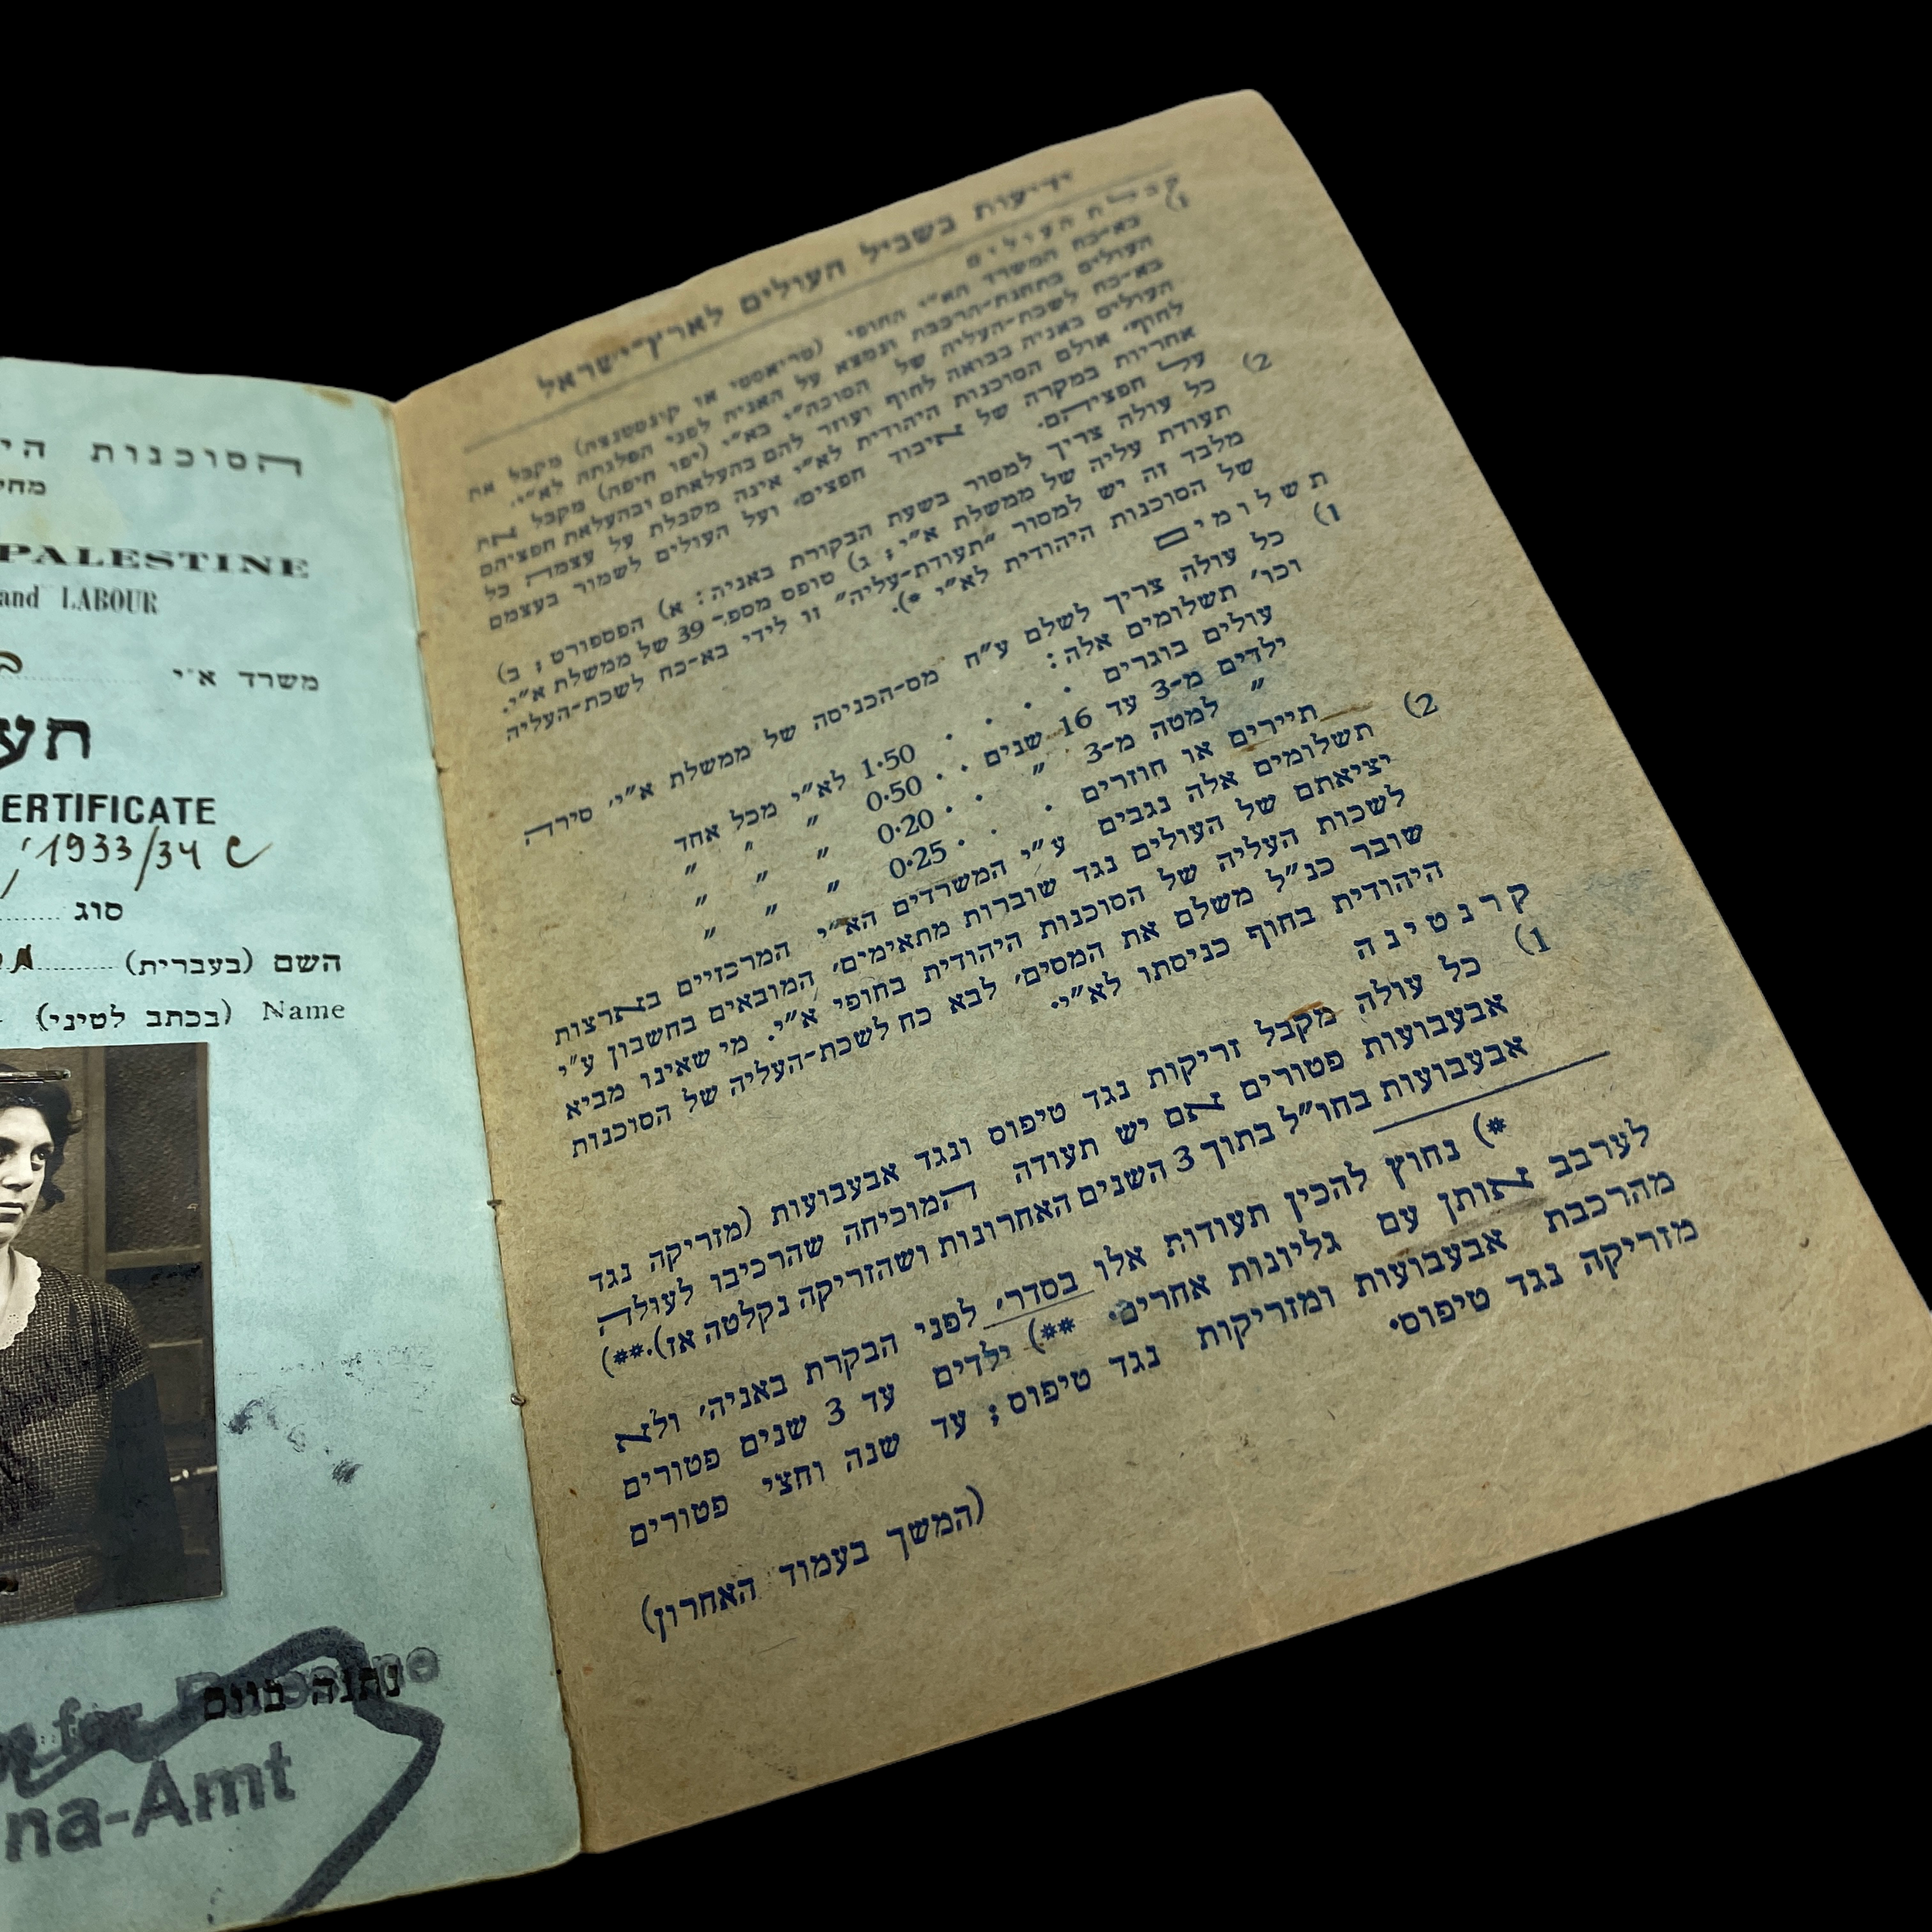 הסוכנות הי
מחי
PALESTINE
and LABOUR
משרד א״י
תעו
ERTIFICATE
1933/34 C
סוג
השם (בעברית)
Name (בכתב לטיני)
נתנה ביום
for Palestine
na-Amt
ידיעות בשביל העולים לארץ-ישראל
קבלת העולים
1) בא-כח המשרד הא״י החופי (טריאסטי או קונסטנצה) מקבל את
העולים בתחנת-הרכבת ונמצא על האניה לפני הפלגתה לא״י.
בא-כח לשכת-העליה של הסוכה״י בא״י (יפו חיפה) מקבל את
העולים באניה בבואה לחוף ועוזר להם בהעלאתם ובהעלאת חפציהם
לחוף. אולם הסוכנות היהודית לא״י אינה מקבלת על עצמה כל
אחריות במקרה של איבוד חפצים, ועל העולים לשמור בעצמם
על חפציהם.
2) כל עולה צריך למסור בשעת הבקורת באניה: א) הפספורט; ב)
תעודת עליה של ממשלת א״י; ג) טופס מספ- 39 של ממשלת א״י.
מלבד זה יש למסור ״תעודת-עליה״ זו לידי בא-כח לשכת-העליה
של הסוכנות היהודית לא״י *).
תשלומים
1) כל עולה צריך לשלם ע״ח מס-הכניסה של ממשלת א״י, סירה
וכו׳ תשלומים אלה:
עולים בוגרים . . . . 1·50 לא״י מכל אחד
ילדים מ-3 עד 16 שנים . . 0·50 ״ ״ ״
״ למטה מ-3 ״ . . 0·20 ״ ״ ״
תיירים או חוזרים . . . 0·25 ״ ״ ״
2) תשלומים אלה נגבים ע״י המשרדים הא״י המרכזיים בארצות
יציאתם של העולים נגד שוברות מתאימים, המובאים בחשבון ע״י
לשכות העליה של הסוכנות היהודית בחופי א״י. מי שאינו מביא
שובר כנ״ל משלם את המסים, לבא כח לשכת-העליה של הסוכנות
היהודית בחוף כניסתו לא״י.
קרנטינה
1) כל עולה מקבל זריקות נגד טיפוס ונגד אבעבועות (מזריקה נגד
אבעבועות פטורים אם יש תעודה המוכיחה שהרכיבו לעולה
אבעבועות בחו״ל בתוך 3 השנים האחרונות ושהזריקה נקלטה אז).**)
*) נחוץ להכין תעודות אלו בסדר, לפני הבקרת באניה, ולא
לערבב אותן עם גליונות אחרים. **) ילדים עד 3 שנים פטורים
מהרכבת אבעבועות ומזריקות נגד טיפוס; עד שנה וחצי פטורים
מזריקה נגד טיפוס.
(המשך בעמוד האחרון)